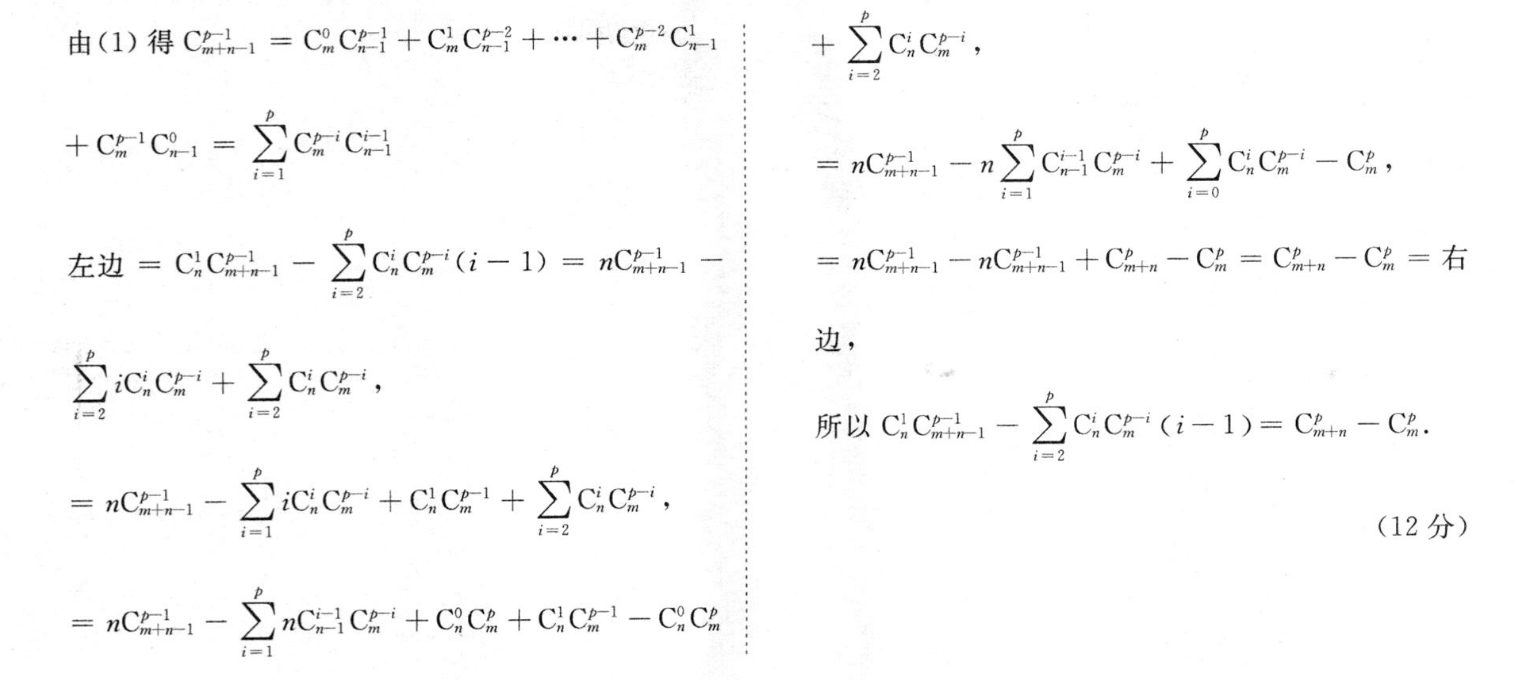 由(1) 得 $C_{m+n-1}^{p-1} = C_m^0 C_{n-1}^{p-1} + C_m^1 C_{n-1}^{p-2} + \cdots + C_m^{p-2} C_{n-1}^1$
$+ C_m^{p-1} C_{n-1}^0 = \sum_{i=1}^{p} C_m^{p-i} C_{n-1}^{i-1}$
左边 $= C_n^1 C_{m+n-1}^{p-1} - \sum_{i=2}^{p} C_n^i C_m^{p-i} (i-1) = n C_{m+n-1}^{p-1} -$
$\sum_{i=2}^{p} i C_n^i C_m^{p-i} + \sum_{i=2}^{p} C_n^i C_m^{p-i},$
$= n C_{m+n-1}^{p-1} - \sum_{i=1}^{p} i C_n^i C_m^{p-i} + C_n^1 C_m^{p-1} + \sum_{i=2}^{p} C_n^i C_m^{p-i},$
$= n C_{m+n-1}^{p-1} - \sum_{i=1}^{p} n C_{n-1}^{i-1} C_m^{p-i} + C_n^0 C_m^p + C_n^1 C_m^{p-1} - C_n^0 C_m^p$
$+ \sum_{i=2}^{p} C_n^i C_m^{p-i},$
$= n C_{m+n-1}^{p-1} - n \sum_{i=1}^{p} C_{n-1}^{i-1} C_m^{p-i} + \sum_{i=0}^{p} C_n^i C_m^{p-i} - C_m^p,$
$= n C_{m+n-1}^{p-1} - n C_{m+n-1}^{p-1} + C_{m+n}^p - C_m^p = C_{m+n}^p - C_m^p =$ 右
边，
所以 $C_n^1 C_{m+n-1}^{p-1} - \sum_{i=2}^{p} C_n^i C_m^{p-i} (i-1) = C_{m+n}^p - C_m^p.$
(12 分)